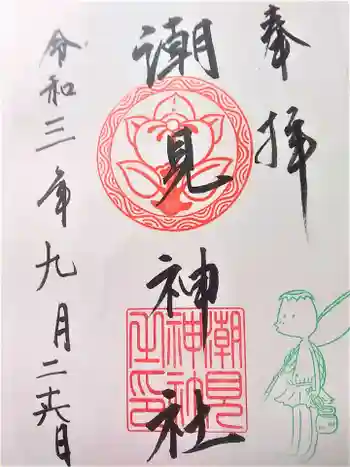 奉拝
潮見神社
潮見神社之印
令和三年九月二十六日